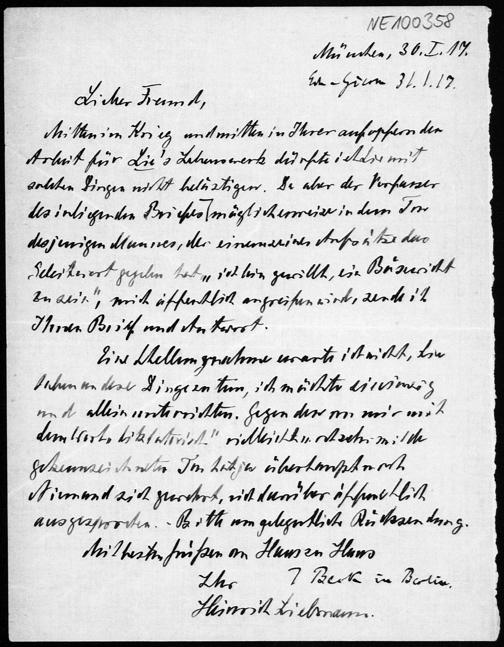 NE100358
München, 30. I. 17.
31.1.17.
Lieber Freund,
Mitten im Krieg und mitten in Ihrer aufopfernden
Arbeit für Lie's Lebenswerk dürfte ich Sie mit
solchen Dingen nicht belästigen. Da aber der Verfasser
des inliegenden Briefes möglicherweise in dem Ton
desjenigen Mannes, der einem seiner Aufsätze das
Geleitwort gegeben hat „ich bin gewillt, ein Bösewicht
zu sein", mich öffentlich angreifen wird, sende ich
Ihnen Brief und Antwort.
Eine Stellungnahme erwarte ich nicht, Sie
haben andere Dinge zu tun, ich möchte Sie einzig
und allein unterrichten. Gegen den von mir mit
dem Worte „diktatorisch" vielleicht noch sehr milde
gekennzeichneten Ton hat ja überhaupt noch
Niemand sich gewehrt, sich darüber öffentlich
ausgesprochen. - Bitte um gelegentliche Rücksendung.
Mit besten Grüßen von Haus zu Haus
Ihr
Beck in Berlin.
Heinrich Liebmann.